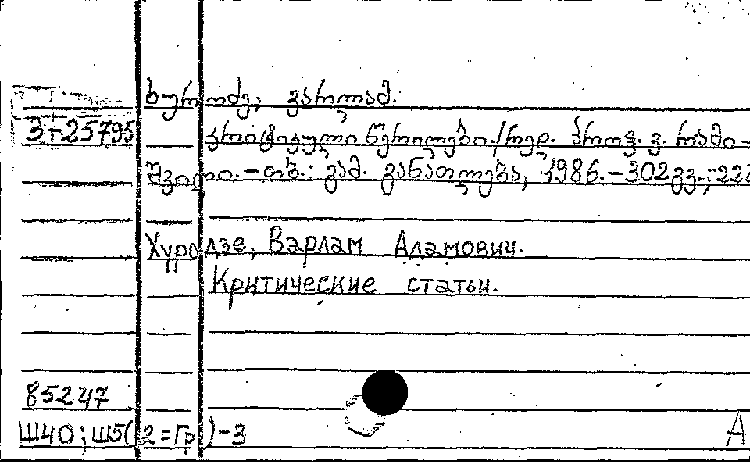 ხუროძე, ვარლამ.
3-25795
კრიტიკული წერილები. /რედ. პროფ. ვ. რამი-
შვილი. - თბ.: გამ. განათლება, 1986. - 302 გვ.; 22
Хуродзе, Варлам Адамович.
Критические статьи.
85247
Ш40; Ш5(2=Гр)-3
A